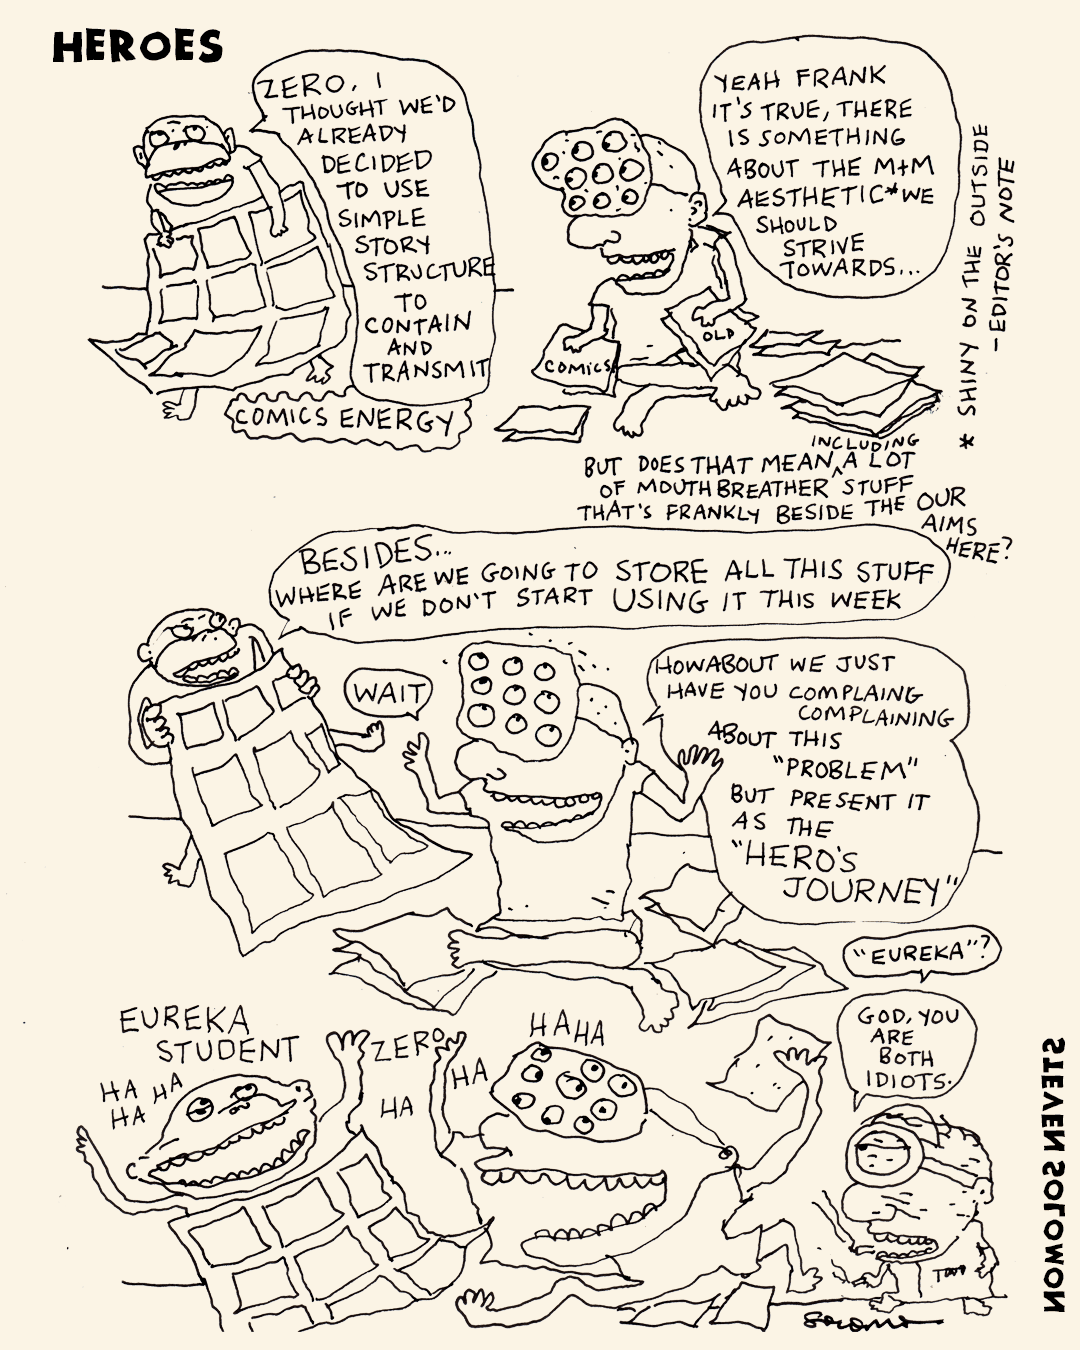 HEROES
ZERO, I
THOUGHT WE'D
ALREADY
DECIDED
TO USE
SIMPLE
STORY
STRUCTURE
TO
CONTAIN
AND
TRANSMIT
COMICS ENERGY
YEAH FRANK
IT'S TRUE, THERE
IS SOMETHING
ABOUT THE M+M
AESTHETIC* WE
SHOULD
STRIVE
TOWARDS...
* SHINY ON THE OUTSIDE
- EDITOR'S NOTE
COMICS
OLD
INCLUDING
BUT DOES THAT MEAN ^ A LOT
OF MOUTHBREATHER STUFF
THAT'S FRANKLY BESIDE THE OUR
AIMS
HERE?
BESIDES...
WHERE ARE WE GOING TO STORE ALL THIS STUFF
IF WE DON'T START USING IT THIS WEEK
WAIT
HOWABOUT WE JUST
HAVE YOU COMPLAING
COMPLAINING
ABOUT THIS
"PROBLEM"
BUT PRESENT IT
AS THE
"HERO'S
JOURNEY"
"EUREKA"?
GOD, YOU
ARE
BOTH
IDIOTS.
EUREKA
STUDENT
ZERO
HA HA
HA HA
HA
HA
HAHA
TODD
STEVEN SOLOWON